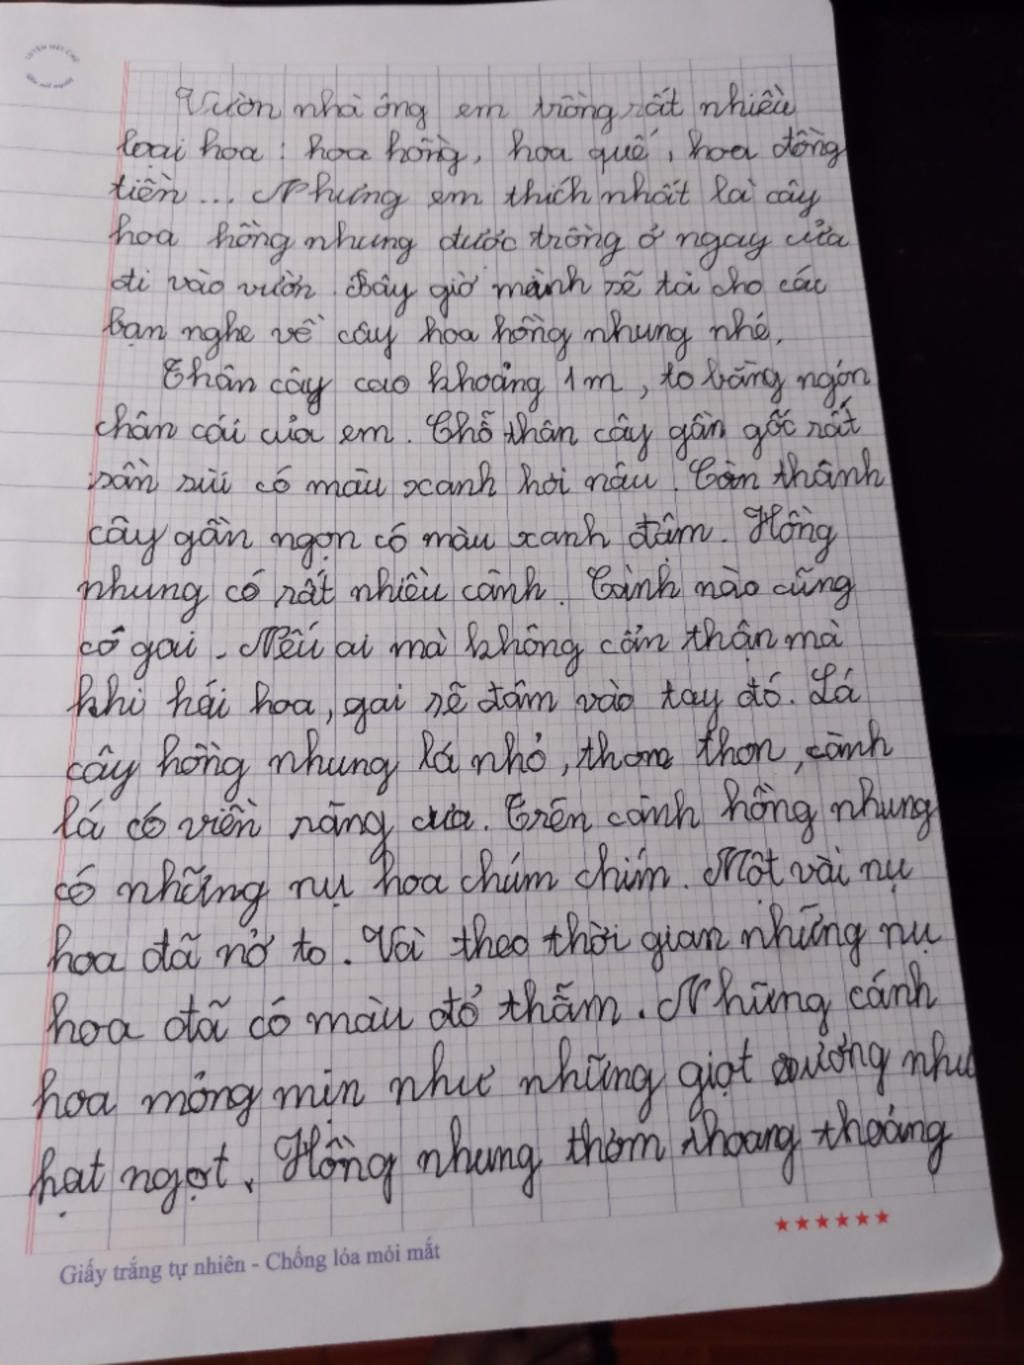 Vườn nhà ông em trồng rất nhiều
loại hoa : hoa hồng, hoa quế, hoa đồng
tiền... Nhưng em thích nhất là cây
hoa hồng nhung được trồng ở ngay cửa
đi vào vườn. Bây giờ mình sẽ tả cho các
bạn nghe về cây hoa hồng nhung nhé.
Thân cây cao khoảng 1m, to bằng ngón
chân cái của em. Chỗ thân cây gần gốc rất
sần sùi có màu xanh hơi nâu. Còn thânh
cây gần ngọn có màu xanh đâm. Hồng
nhung có rất nhiều cành. Cành nào cũng
có gai. Nếu ai mà không cẩn thận mà
khi hái hoa, gai sẽ đâm vào tay đó. Lá
cây hồng nhung lá nhỏ, thon thon, cành
lá có viền răng cưa. Trên cành hồng nhung
có những nụ hoa chúm chím. Một vài nụ
hoa đã nở to. Và theo thời gian những nụ
hoa đã có màu đỏ thẫm. Những cánh
hoa mỏng mịn như những giọt sương như
hạt ngọt. Hồng nhung thơm thoang thoảng
Giấy trắng tự nhiên - Chống lóa mỏi mắt